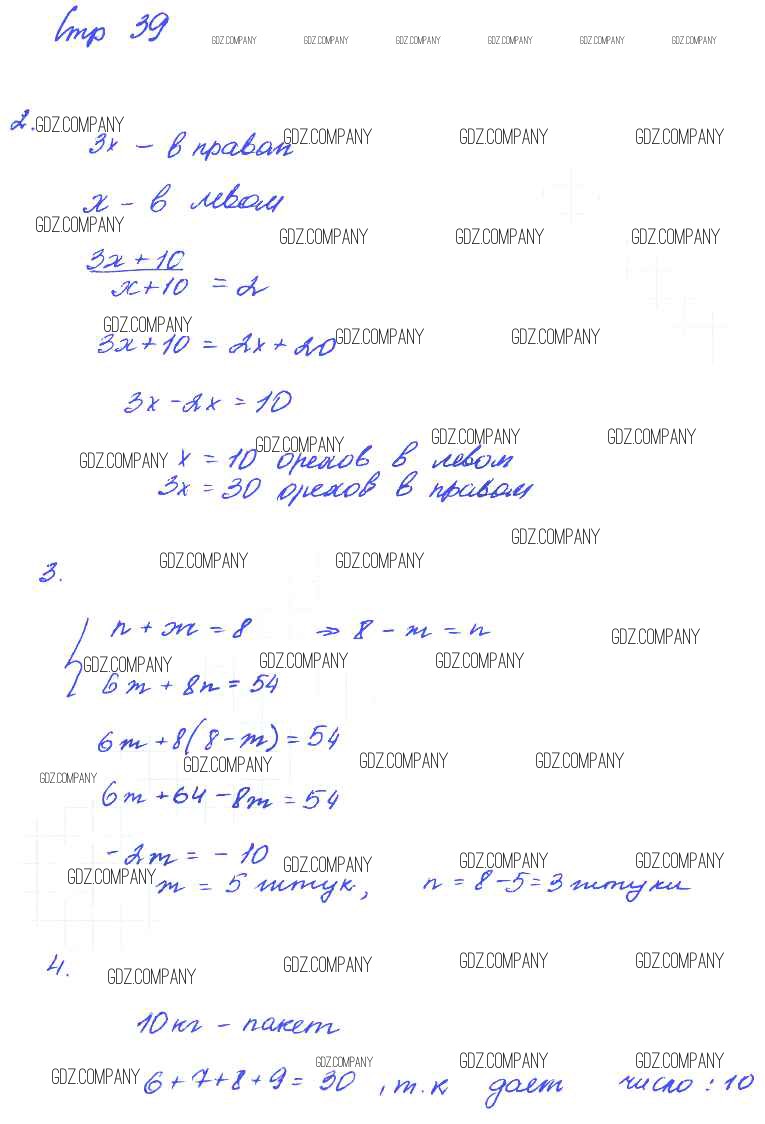 Стр 39
GDZ.COMPANY GDZ.COMPANY GDZ.COMPANY GDZ.COMPANY GDZ.COMPANY GDZ.COMPANY
2. GDZ.COMPANY
3x – в правом GDZ.COMPANY GDZ.COMPANY GDZ.COMPANY
x – в левом
GDZ.COMPANY GDZ.COMPANY GDZ.COMPANY GDZ.COMPANY
3x + 10
x + 10 = 2
GDZ.COMPANY GDZ.COMPANY GDZ.COMPANY
3x + 10 = 2x + 20
3x – 2x = 10
GDZ.COMPANY GDZ.COMPANY GDZ.COMPANY GDZ.COMPANY
x = 10 орехов в левом
3x = 30 орехов в правом
GDZ.COMPANY
GDZ.COMPANY GDZ.COMPANY
3.
n + m = 8 ⇒ 8 – m = n GDZ.COMPANY
GDZ.COMPANY GDZ.COMPANY GDZ.COMPANY
6m + 8n = 54
6m + 8(8 – m) = 54
GDZ.COMPANY GDZ.COMPANY GDZ.COMPANY
GDZ.COMPANY
6m + 64 – 8m = 54
-2m = – 10
GDZ.COMPANY GDZ.COMPANY GDZ.COMPANY GDZ.COMPANY
m = 5 штук, n = 8 – 5 = 3 штуки
4. GDZ.COMPANY GDZ.COMPANY GDZ.COMPANY GDZ.COMPANY
10кг – пакет
GDZ.COMPANY GDZ.COMPANY GDZ.COMPANY GDZ.COMPANY
6 + 7 + 8 + 9 = 30 , т.к дает число : 10